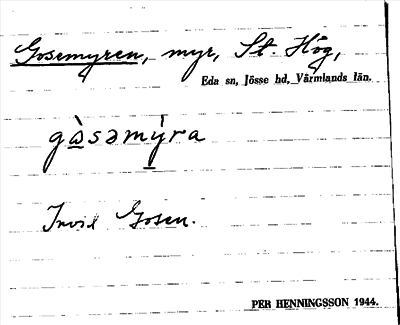 Gosemyren, myr, St. Hög,
Eda sn, Jösse hd, Värmlands län.
gàsəmýra
Invid Gosen.
PER HENNINGSSON 1944.